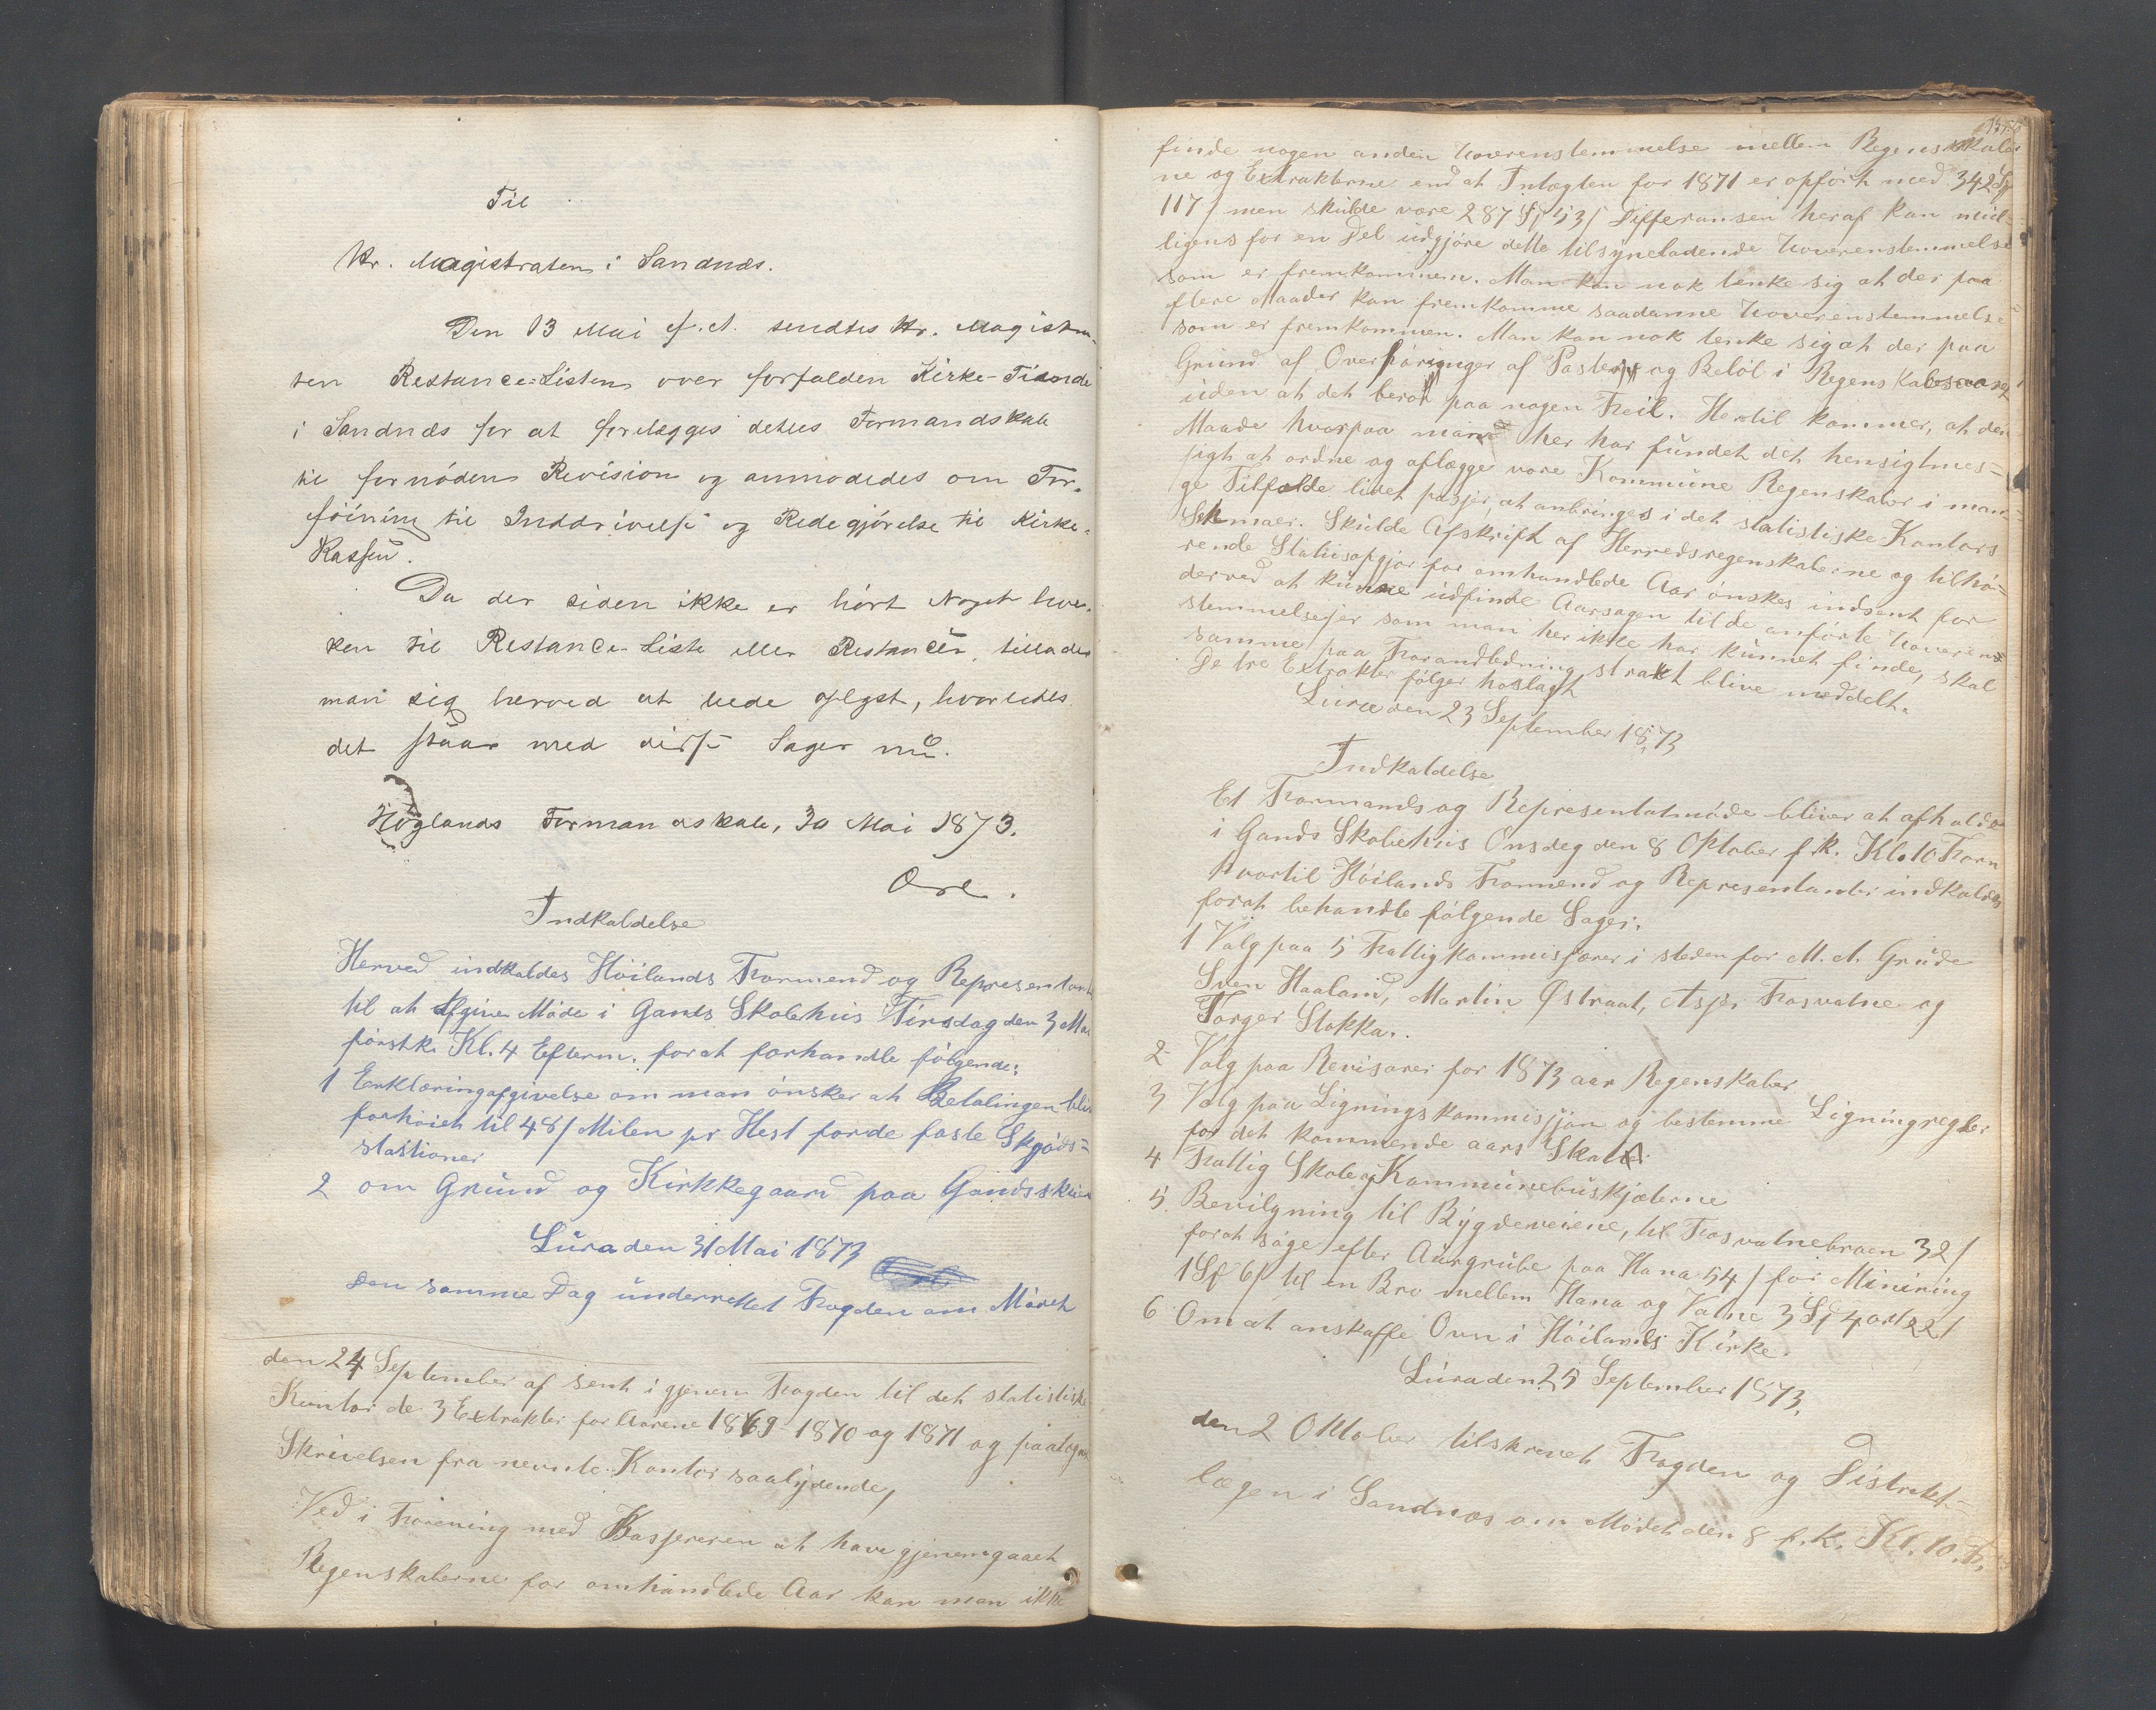 Til
Hr. Magistraten i Sandnæs.
Den 13 Mai d. A. sendtes Hr. Magistra-
ten Restance-Listen over forfalden Kirke-Tiende
i Sandnæs for at forelægges dettes Formandskab
til fornøden Revision og anmodedes om For-
føining til Inddrivelse og Redegjørelse til Kirke-
Kassen.
Da der siden ikke er hørt Noget hver-
ken til Restance-Liste eller Restancer, tillader
man sig herved at bede oplyst, hvorledes
det staar med disse Sager nu.
Høglands Formandskab, 30 Mai 1873.
Indkaldelse
Herved indkaldes Höilands Formend og Representant
til at afgive Möde i Gands Skolehus Tirsdag den 3 Mai
förstk. Kl. 4 Efterm. forat forhandle fölgende:
1 Erklæringafgivelse om man önsker at Betalingen bliv
forhöiet til 48 / Milen pr Hest for de faste Skyds=
stastioner
2 om Grund og Kirkkegaard paa Gands
Lura den 31 Mai 1873
den samme Dag underrettet Fogden om Mödet
den 24 September af sent igjenem Fogden til det statistiske
Kontor de 3 Extrakter for Aarene 1869 - 1870 og 1871 og paategnet
Skrivelsen fra nevnte Kontor saalydende,
Ved i Forening med Kassereren at have gjenemgaaet
Regenskaberne for omhandlede Aar kan man ikke
finde nogen anden Uoverenstemmelse mellem Regenskaber
ne og Extrakterne end at Intægten for 1871 er opfört med 342 Sp
117 / men skulde vore 287 Sp 53 / Differansen heraf kan mu-
ligens for en Del udgjöre dette tilsyneladende Uoverenstemmelse
som er fremkommen. Man kan nok tenke sig at der paa
flere Maader kan fremkomme saadanne Uoverenstemmelse
som er fremkommen. Man kan nok tenke sig at der paa
Grund af Overföringer af Poster og Belöb i Regenskabs
uden at det beror paa nogen Feil. Hertil kommer, at den
Maade hvorpaa man her har fundet det hensigtmes=
sigt at ordne og aflægge vore Kommune Regenskaber i man=
ge Tilfelde lidet passer, at anbringes i det statistiske Kontors
Skmaer. Skulde Afskrift af Herredsregenskaberne og tilhö=
rende Statusopgjör for omhandlede Aar önskes indsent for
derved at kunne udfinde Aarsagen til de anförte Uoverens
stemmelsejer som man her ikke har kunnet finde, skal
samme paa Forandledning strakt blive meddelt.
De tre Extrakter fölger hoslagt
Lura den 23 September 1873
Indkaldelse
Et Formands og Representatmöde bliver at afholde
i Gands Skolehus Onsdeg den 8 Oktober f. k. Kl. 10 Form
hvortil Höilands Formend og Representanter indkaldes
forat behandle fölgende Sager:
1 Valg paa 5 Fattigkommisjærer i steden for M. A. Grude
Sven Haaland, Martin Østraat, Asjr. Fosvatne og
Torger Stokka.
2 Valg paa Revisorer for 1873 aar Regenskaber
3 Valg paa Ligningskommissjon og bestemme Ligningregler
for det kommende aars Skatte
4 Fattig Skole og Kommunebuskjeterne
5. Bevilgning til Bygdeveiene, til Fosvatnebroen 32 /
forat söge efter Aurgrube paa Hana 54 / for Minining
1 Sp 6 / til en Bro mellem Hana og Vatne 3 Sp 4 ort 22 /
6 Om at anskaffe Ovn i Höilands Kirke.
Lura den 25 September 1873.
den 2 Oktober tilskrevet Fogden og Distrekt-
lægen i Sandnæs om Mödet den 8 f. k. Kl. 10. F.